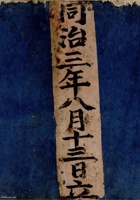 同治三年八月十三日立